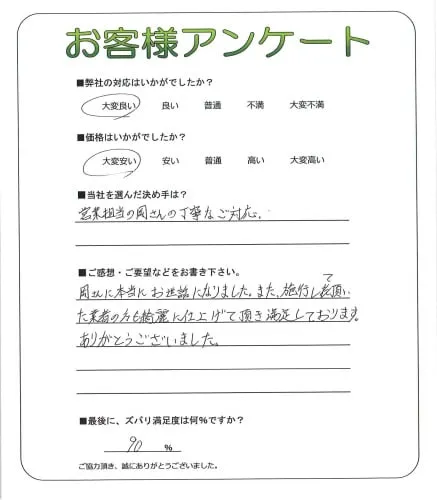 お客様アンケート
■弊社の対応はいかがでしたか？
大変良い 良い 普通 不満 大変不満
■価格はいかがでしたか？
大変安い 安い 普通 高い 大変高い
■当社を選んだ決め手は？
営業担当の岡さんの丁寧なご対応。
■ご感想・ご要望などをお書き下さい。
岡さんに本当にお世話になりました。また、施行して頂い
た業者の方も綺麗に仕上げて頂き満足しております。
ありがとうございました。
■最後に、ズバリ満足度は何%ですか？
90 %
ご協力頂き、誠にありがとうございました。